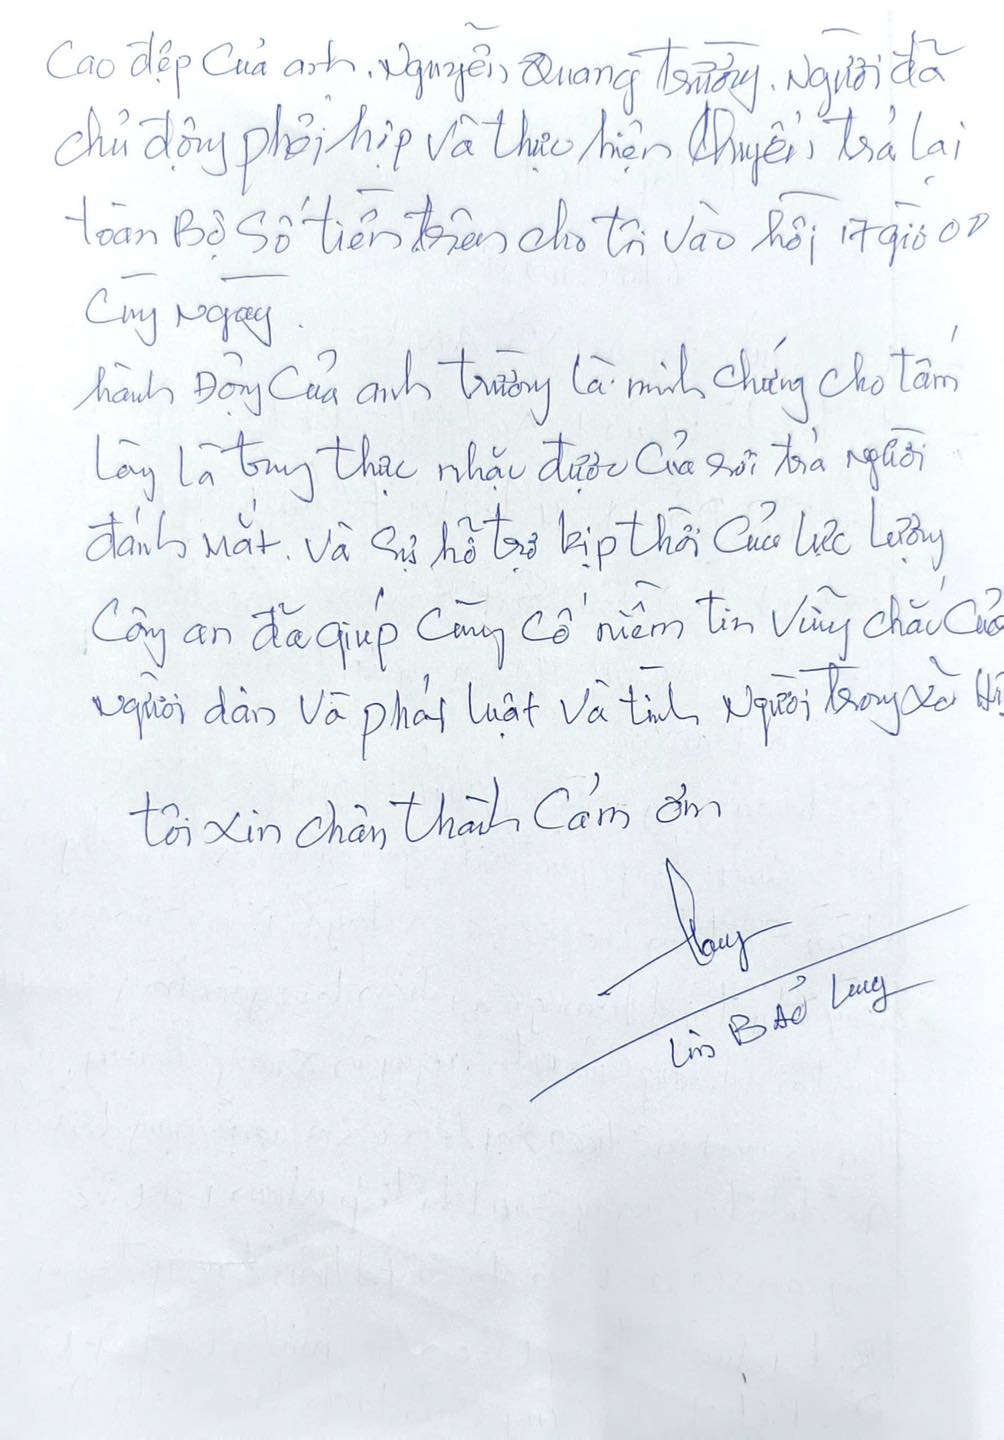 Cao đẹp Của anh. Nguyễn Quang Trường. Người đã
chủ động phối hợp và thực hiện Chuyển trả lại
toàn Bộ Số tiền trên cho tôi vào hồi 17 giờ 00
Cùng Ngày.
hành Động Của anh trường là minh chứng cho tấm
lòng là trung thực nhặc được Của rơi trả người
đánh mất. và sự hỗ trợ kịp thời Của lực lượng
Công an đã giúp Cũng Cố niềm tin vững chắc Của
người dân và pháp luật và tình người trong xã Hội
tôi xin chân thành Cảm ơn
BẢO